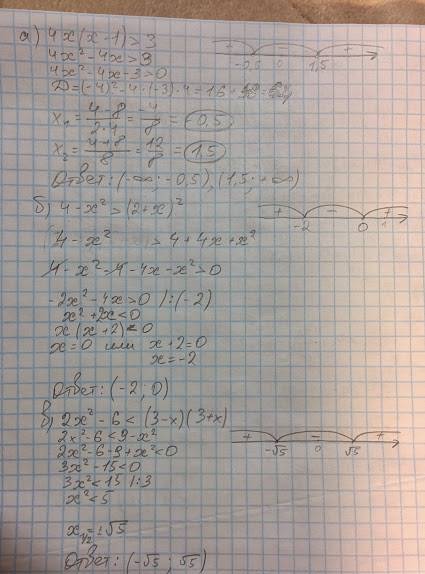 а) 4x(x-1)>3
+ - +
-0,5 0 1,5
4x²-4x>3
4x²-4x-3>0
D=(-4)²-4·(-3)·4=16+48=64
x₁=(4-8)/(2·4)=-4/8=-0,5
x₂=(4+8)/8=12/8=1,5
Ответ: (-∞; -0,5), (1,5; +∞)
б) 4-x²>(2+x)²
+ - +
-2 0 1
4-x²>4+4x+x²
4-x²-4-4x-x²>0
-2x²-4x>0 |:(-2)
x²+2x<0
x(x+2)<0
x=0 или x+2=0
x=-2
Ответ: (-2; 0)
в) 2x²-6<(3-x)(3+x)
+ - +
-√5 0 √5
2x²-6<9-x²
2x²-6-9+x²<0
3x²-15<0
3x²<15 |:3
x²<5
x₁/₂=±√5
Ответ: (-√5; √5)